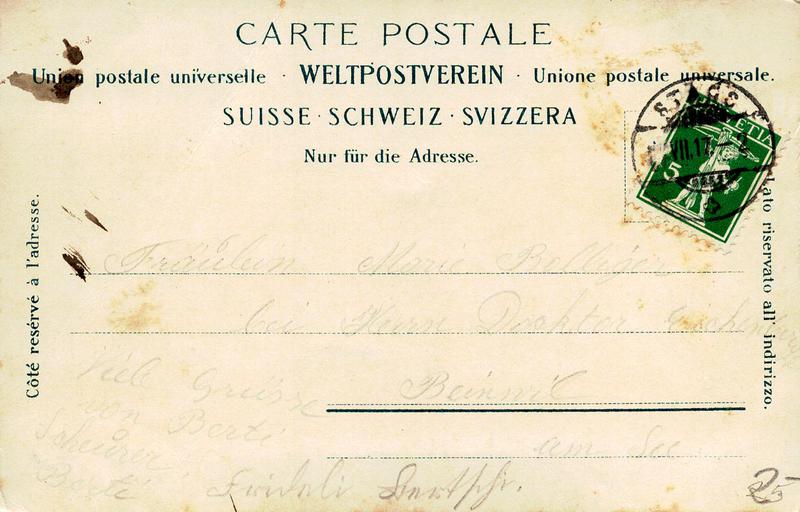 CARTE POSTALE
Union postale universelle · WELTPOSTVEREIN · Unione postale universale.
SUISSE · SCHWEIZ · SVIZZERA
Nur für die Adresse.
Côté resérvé à l'adresse.
Lato riservato all' indirizzo.
HELVETIA
5
VII.17.
Fräulein Marie
bei Herrn Dochtor
Beinwil
am See
Viele Grüsse
von Berti
Scheurer
Berti Frideli
25